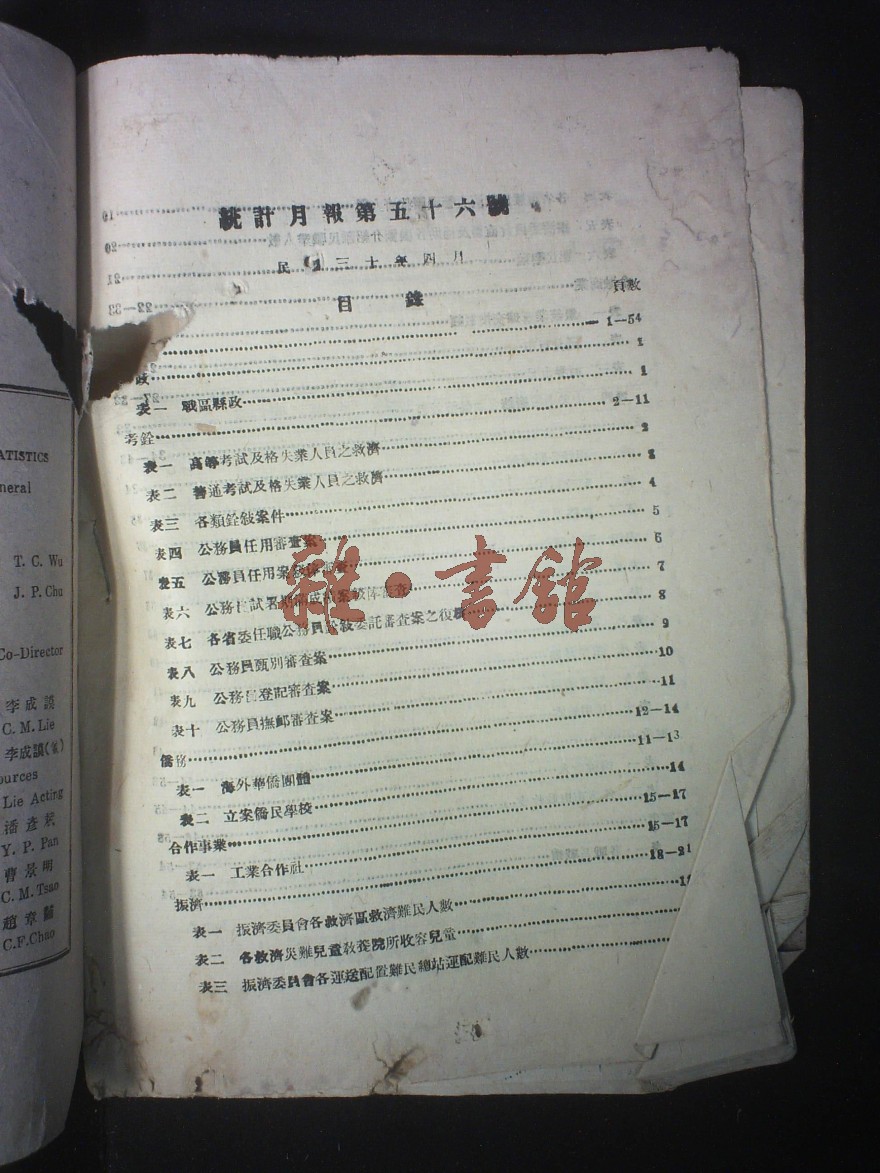 ATISTICS
neral
T. C. Wu
J. P. Chu
Co-Director
李成謨
C. M. Lie
李成謨
ources
Lie Acting
Y. P. Pan
曹景明
C. M. Tsao
趙章黼
C.F.Chao
統計月報第五十六號
民國三十年四月
目錄
頁數
1—54
政 1
表一 戰區縣政 1
考銓 2—11
表一 高等考試及格失業人員之救濟 2
表二 普通考試及格失業人員之救濟 3
表三 各類銓敍案件 4
表四 公務員任用審查案 5
表五 公務員任用案 審查 6
表六 公務員試署期滿成績案 審查 7
表七 各省委任職公務員銓敍委託審查案之復核 8
表八 公務員甄別審查案 9
表九 公務員登記審查案 10
表十 公務員撫卹審查案 11
僑務 12—14
表一 海外華僑團體 11—13
表二 立案僑民學校 14
合作事業 15—17
表一 工業合作社 15—17
振濟 18—21
表一 振濟委員會各救濟區救濟難民人數
表二 各救濟災難兒童敎養院所收容兒童
表三 振濟委員會各運送配置難民總站運配難民人數
雜·書館